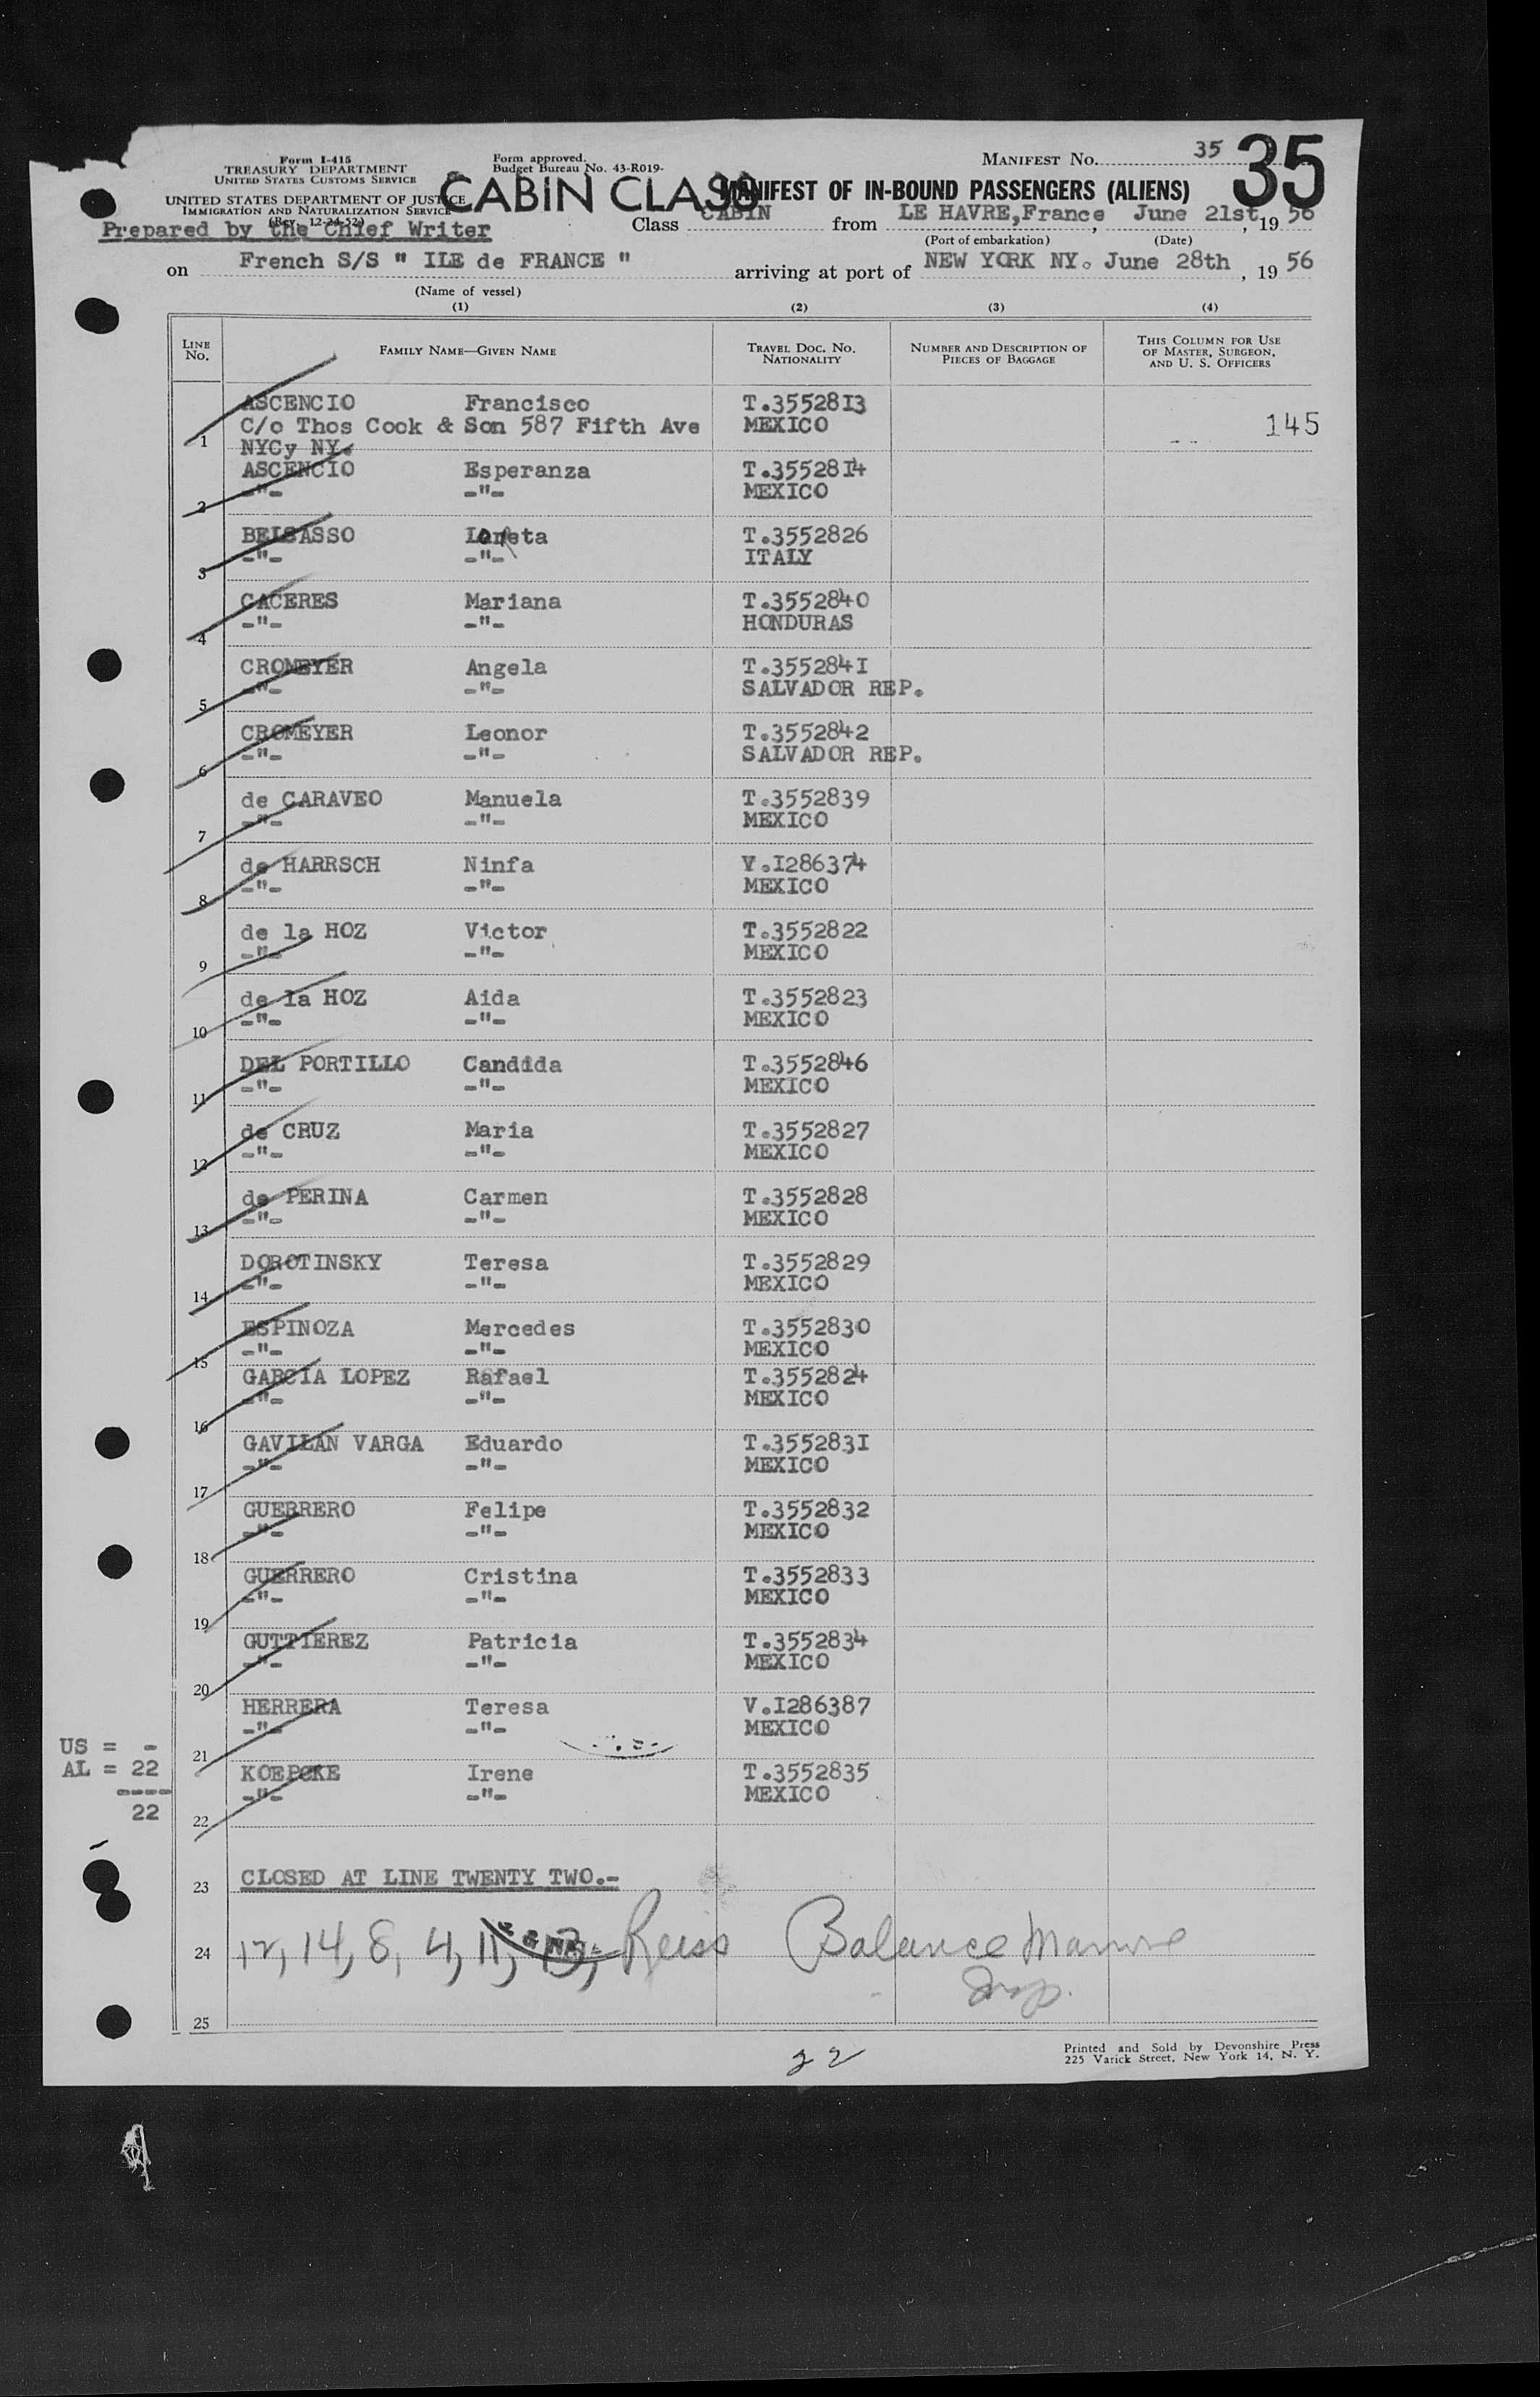 Form I-415
TREASURY DEPARTMENT
UNITED STATES CUSTOMS SERVICE
UNITED STATES DEPARTMENT OF JUSTICE
IMMIGRATION AND NATURALIZATION SERVICE
(Rev. 12-24-52)
Prepared by the Chief Writer
Form approved.
Budget Bureau No. 43-R019-
CABIN CLASS
MANIFEST No. 35
35
MANIFEST OF IN-BOUND PASSENGERS (ALIENS)
Class CABIN from LE HAVRE,France, June 21st, 19 56
(Port of embarkation) (Date)
on French S/S " ILE de FRANCE " arriving at port of NEW YORK NY. June 28th, 19 56
(Name of vessel)
(1) (2) (3) (4)
LINE No. FAMILY NAME—GIVEN NAME TRAVEL DOC. No. NATIONALITY NUMBER AND DESCRIPTION OF PIECES OF BAGGAGE THIS COLUMN FOR USE OF MASTER, SURGEON, AND U. S. OFFICERS
ASCENCIO Francisco T.3552813
1 C/o Thos Cook & Son 587 Fifth Ave MEXICO 145
NYCy NY.
ASCENCIO Esperanza T.3552814
2 -"- -"- MEXICO
BELSASSO T.3552826
3 -"- -"- ITALY
CACERES Mariana T.3552840
4 -"- -"- HONDURAS
CROMEYER Angela T.355284I
5 -"- -"- SALVADOR REP.
CROMEYER Leonor T.3552842
6 -"- -"- SALVADOR REP.
de CARAVEO Manuela T.3552839
7 -"- -"- MEXICO
de HARRSCH Ninfa V.I286374
8 -"- -"- MEXICO
de la HOZ Victor T.3552822
9 -"- -"- MEXICO
de la HOZ Aida T.3552823
10 -"- -"- MEXICO
DEL PORTILLO Candida T.3552846
11 -"- -"- MEXICO
de CRUZ Maria T.3552827
12 -"- -"- MEXICO
de PERINA Carmen T.3552828
13 -"- -"- MEXICO
DOROTINSKY Teresa T.3552829
14 -"- -"- MEXICO
ESPINOZA Mercedes T.3552830
15 -"- -"- MEXICO
GARCIA LOPEZ Rafael T.3552824
16 -"- -"- MEXICO
GAVILAN VARGA Eduardo T.355283I
17 -"- -"- MEXICO
GUERRERO Felipe T.3552832
18 -"- -"- MEXICO
GUERRERO Cristina T.3552833
19 -"- -"- MEXICO
GUTTIEREZ Patricia T.3552834
20 -"- -"- MEXICO
HERRERA Teresa V.I286387
21 -"- -"- MEXICO
US = -
AL = 22
----
22
KOEPCKE Irene T.3552835
22 -"- -"- MEXICO
23 CLOSED AT LINE TWENTY TWO.-
24 12, 14, 8, 4, 11, 13, Reiss Balance
Insp.
25
22
Printed and Sold by Devonshire Press
225 Varick Street, New York 14, N. Y.